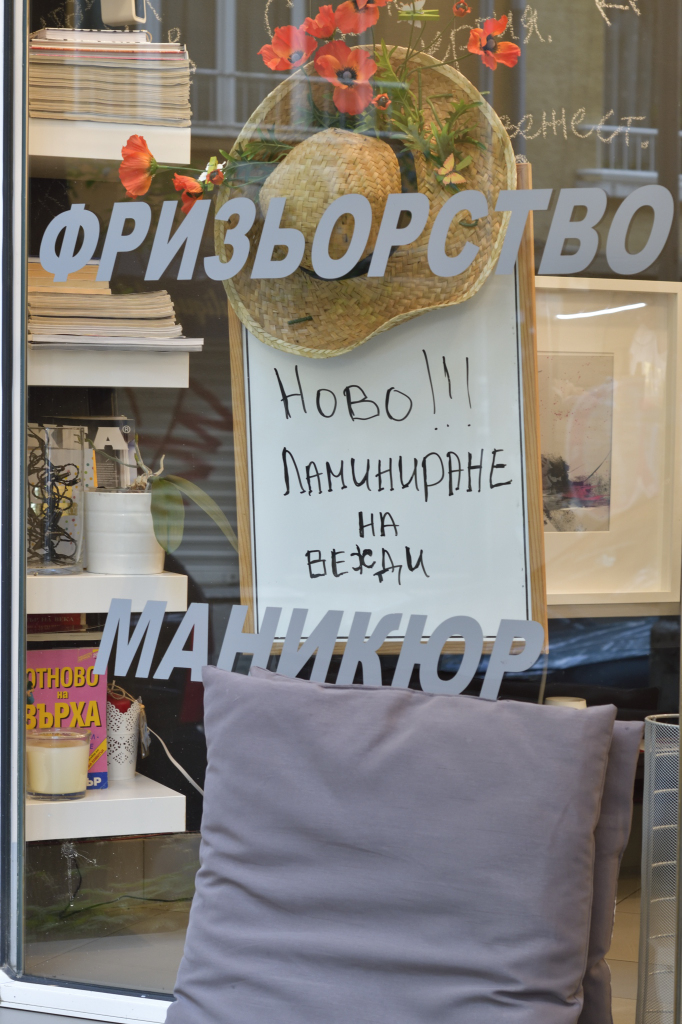 ФРИЗЬОРСТВО
НОВО!!!
ЛАМИНИРАНЕ
НА
ВЕЖДИ
МАНИКЮР
ОТНОВО
на
ВЪРХА